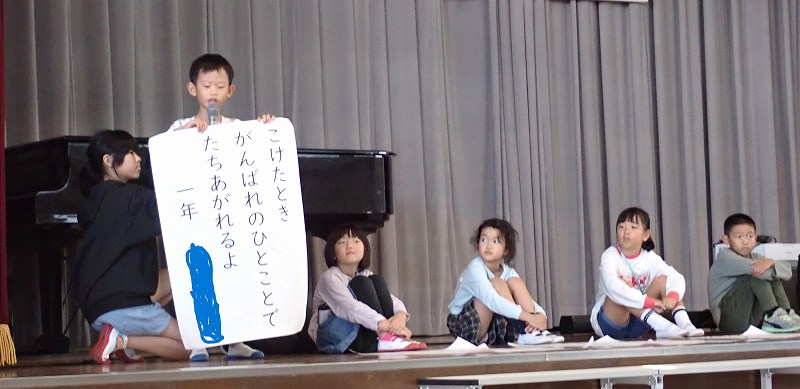 こけたとき
がんばれのひとことで
たちあがれるよ
一年